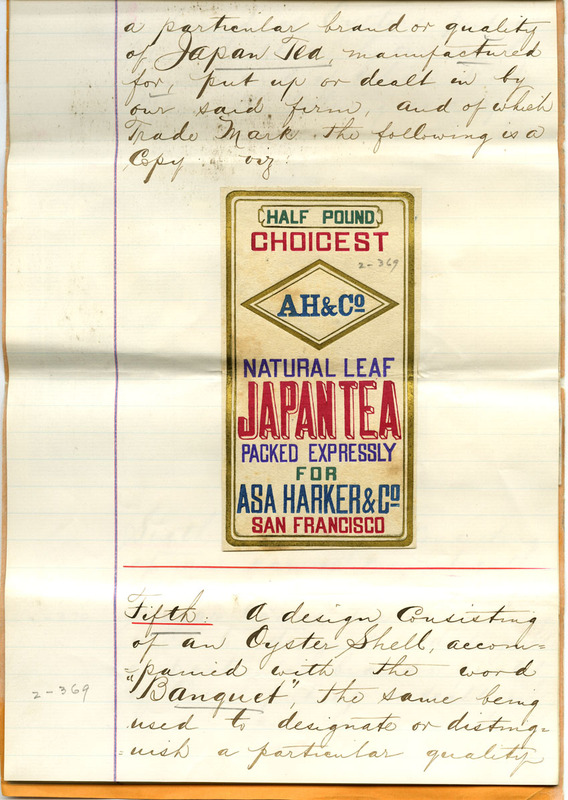 a particular brand or quality
of Japan Tea, manufactured
for, put up or dealt in by
our said firm, and of which
Trade Mark the following is a
Copy viz:
HALF POUND
CHOICEST
2-369
AH&Co
NATURAL LEAF
JAPAN TEA
PACKED EXPRESSLY
FOR
ASA HARKER & Co
SAN FRANCISCO
Fifth: A design Consisting
of an Oyster Shell, accom=
=panied with the word
"Banquet", the same being
2-369
used to designate or disting=
=uish a particular quality